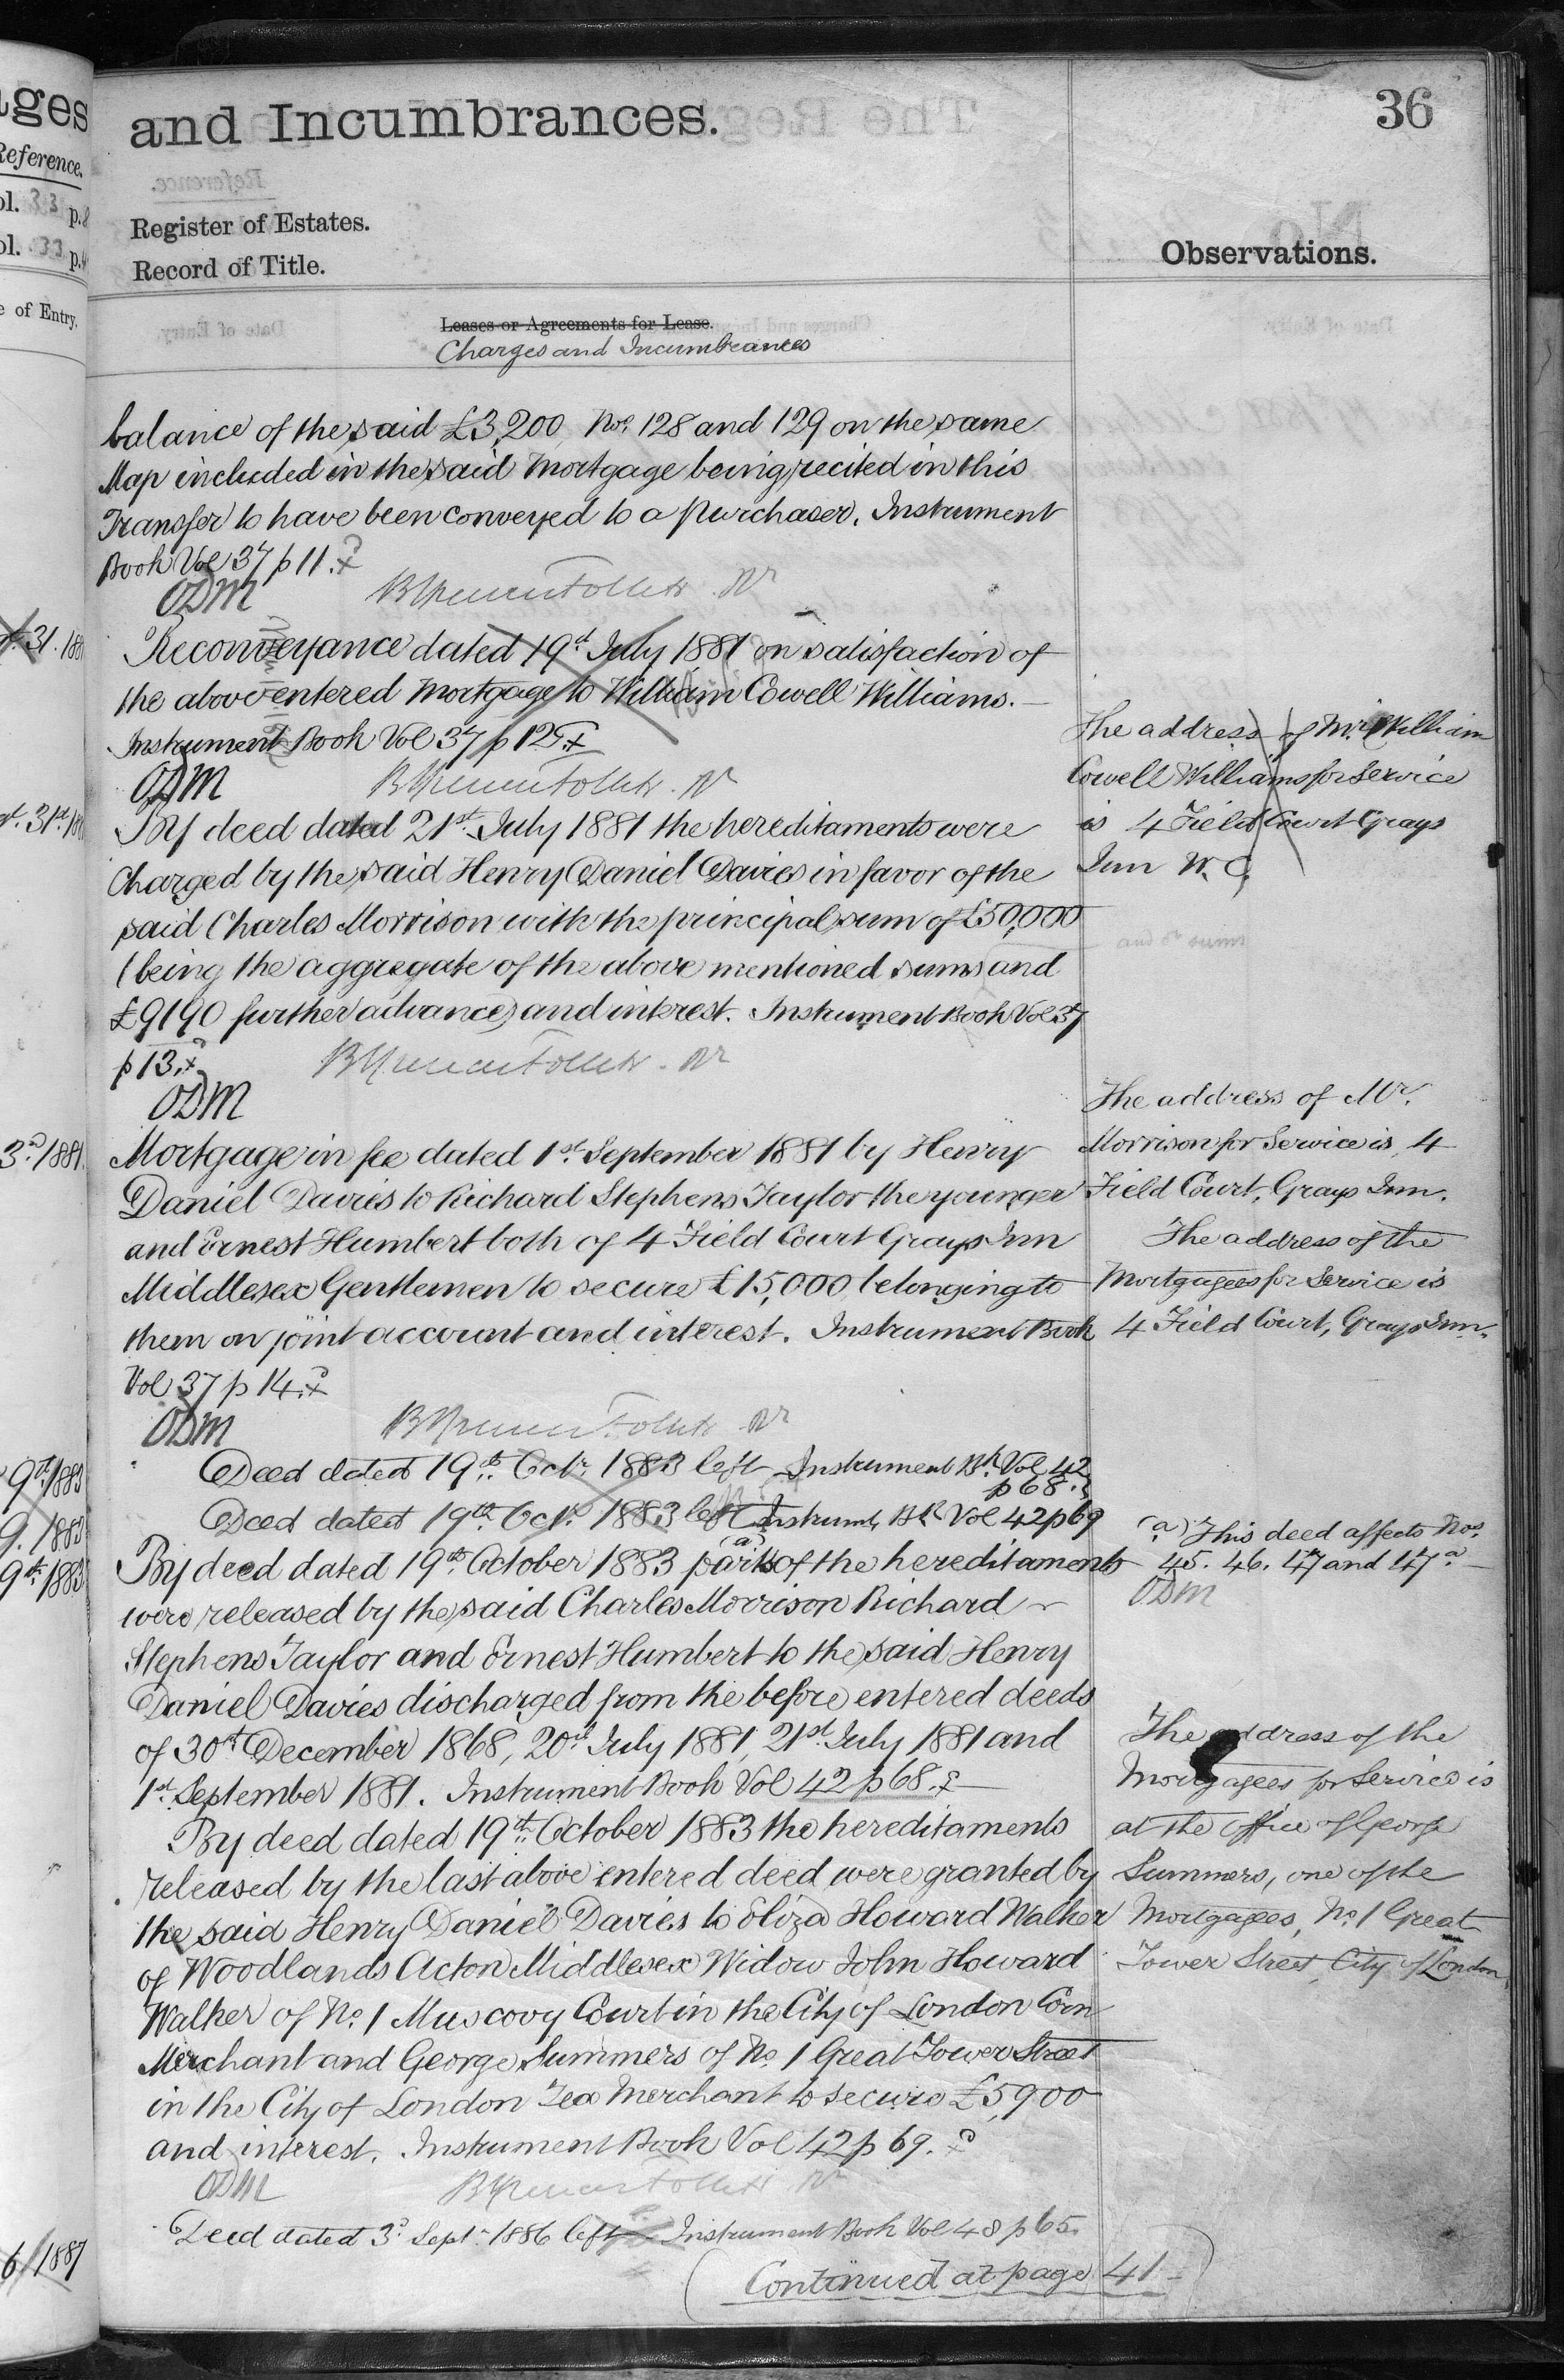 ages
Reference.
ol. 33 p.
ol. 33 p.
e of Entry.
and Incumbrances.
36
Register of Estates.
Record of Title.
Observations.
Leases or Agreements for Lease.
Charges and Incumbrances
balance of the said £3,200, Nos. 128 and 129 on the same
Map included in the said Mortgage being recited in this
Transfer to have been conveyed to a purchaser. Instrument
Book Vol 37 p 11.
ODM
31. 188
Reconveyance dated 19th July 1881 on satisfaction of
the above entered Mortgage to William Cowell Williams.
Instrument Book Vol 37 p 12.
ODM
The address of Mr. William
Cowell Williams for Service
is 4 Field Court Grays
Inn W. C.
31st 188
By deed dated 21st July 1881 the hereditaments were
Charged by the said Henry Daniel Davies in favor of the
said Charles Morrison with the principal sum of £50,000
(being the aggregate of the above mentioned sums and
£9190 further advance) and interest. Instrument Book Vol 37
p 13.
ODM
The address of Mr.
Morrison for Service is 4
Field Court, Grays Inn.
3rd/1881.
Mortgage in fee dated 1st September 1881 by Henry
Daniel Davies to Richard Stephens Taylor the younger
and Ernest Humbert both of 4 Field Court Grays Inn
Middlesex Gentlemen to secure £15,000 belonging to
them on joint account and interest. Instrument Book
Vol 37 p 14.
ODM
The address of the
Mortgagees for Service is
4 Field Court, Grays Inn.
9th/1883
Deed dated 19th Octr. 1883 left Instrument Bk. Vol 42
p 68.
9. 1883
Deed dated 19th Octr. 1883 left Instrumt. Bk Vol 42 p 69
9th 1883
(a)
By deed dated 19th October 1883 parts of the hereditaments
were released by the said Charles Morrison Richard
Stephens Taylor and Ernest Humbert to the said Henry
Daniel Davies discharged from the before entered deeds
of 30th December 1868, 20th July 1881, 21st July 1881 and
1st September 1881. Instrument Book Vol 42 p 68.
(a) This deed affects Nos.
45. 46. 47 and 47a
ODM
By deed dated 19th October 1883 the hereditaments
released by the last above entered deed were granted by
the said Henry Daniel Davies to Eliza Howard Walker
of Woodlands Acton Middlesex Widow John Howard
Walker of No. 1 Muscovy Court in the City of London Corn
Merchant and George Summers of No. 1 Great Tower Street
in the City of London Tea Merchant to secure £5,900
and interest. Instrument Book Vol 42 p 69.
ODM
The address of the
Mortgagees for Service is
at the office of George
Summers, one of the
Mortgagees, No. 1 Great
Tower Street, City of London
6/1887
Deed dated 3rd Septr. 1886 left Instrument Book Vol 48 p 65.
(Continued at page 41)